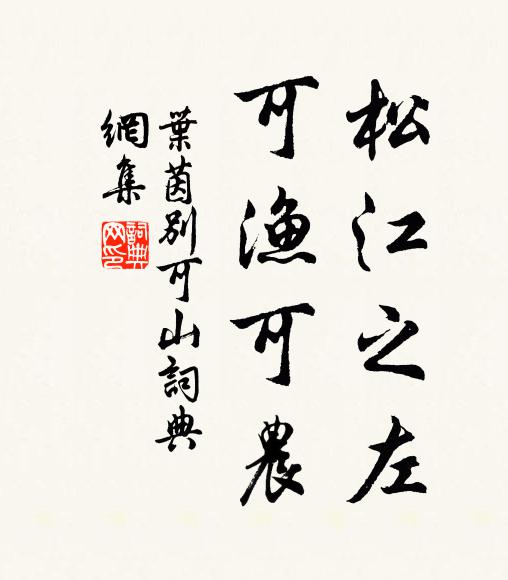 松江之左
可漁可農
葉茵別可山詞典
網集
詞典
网印